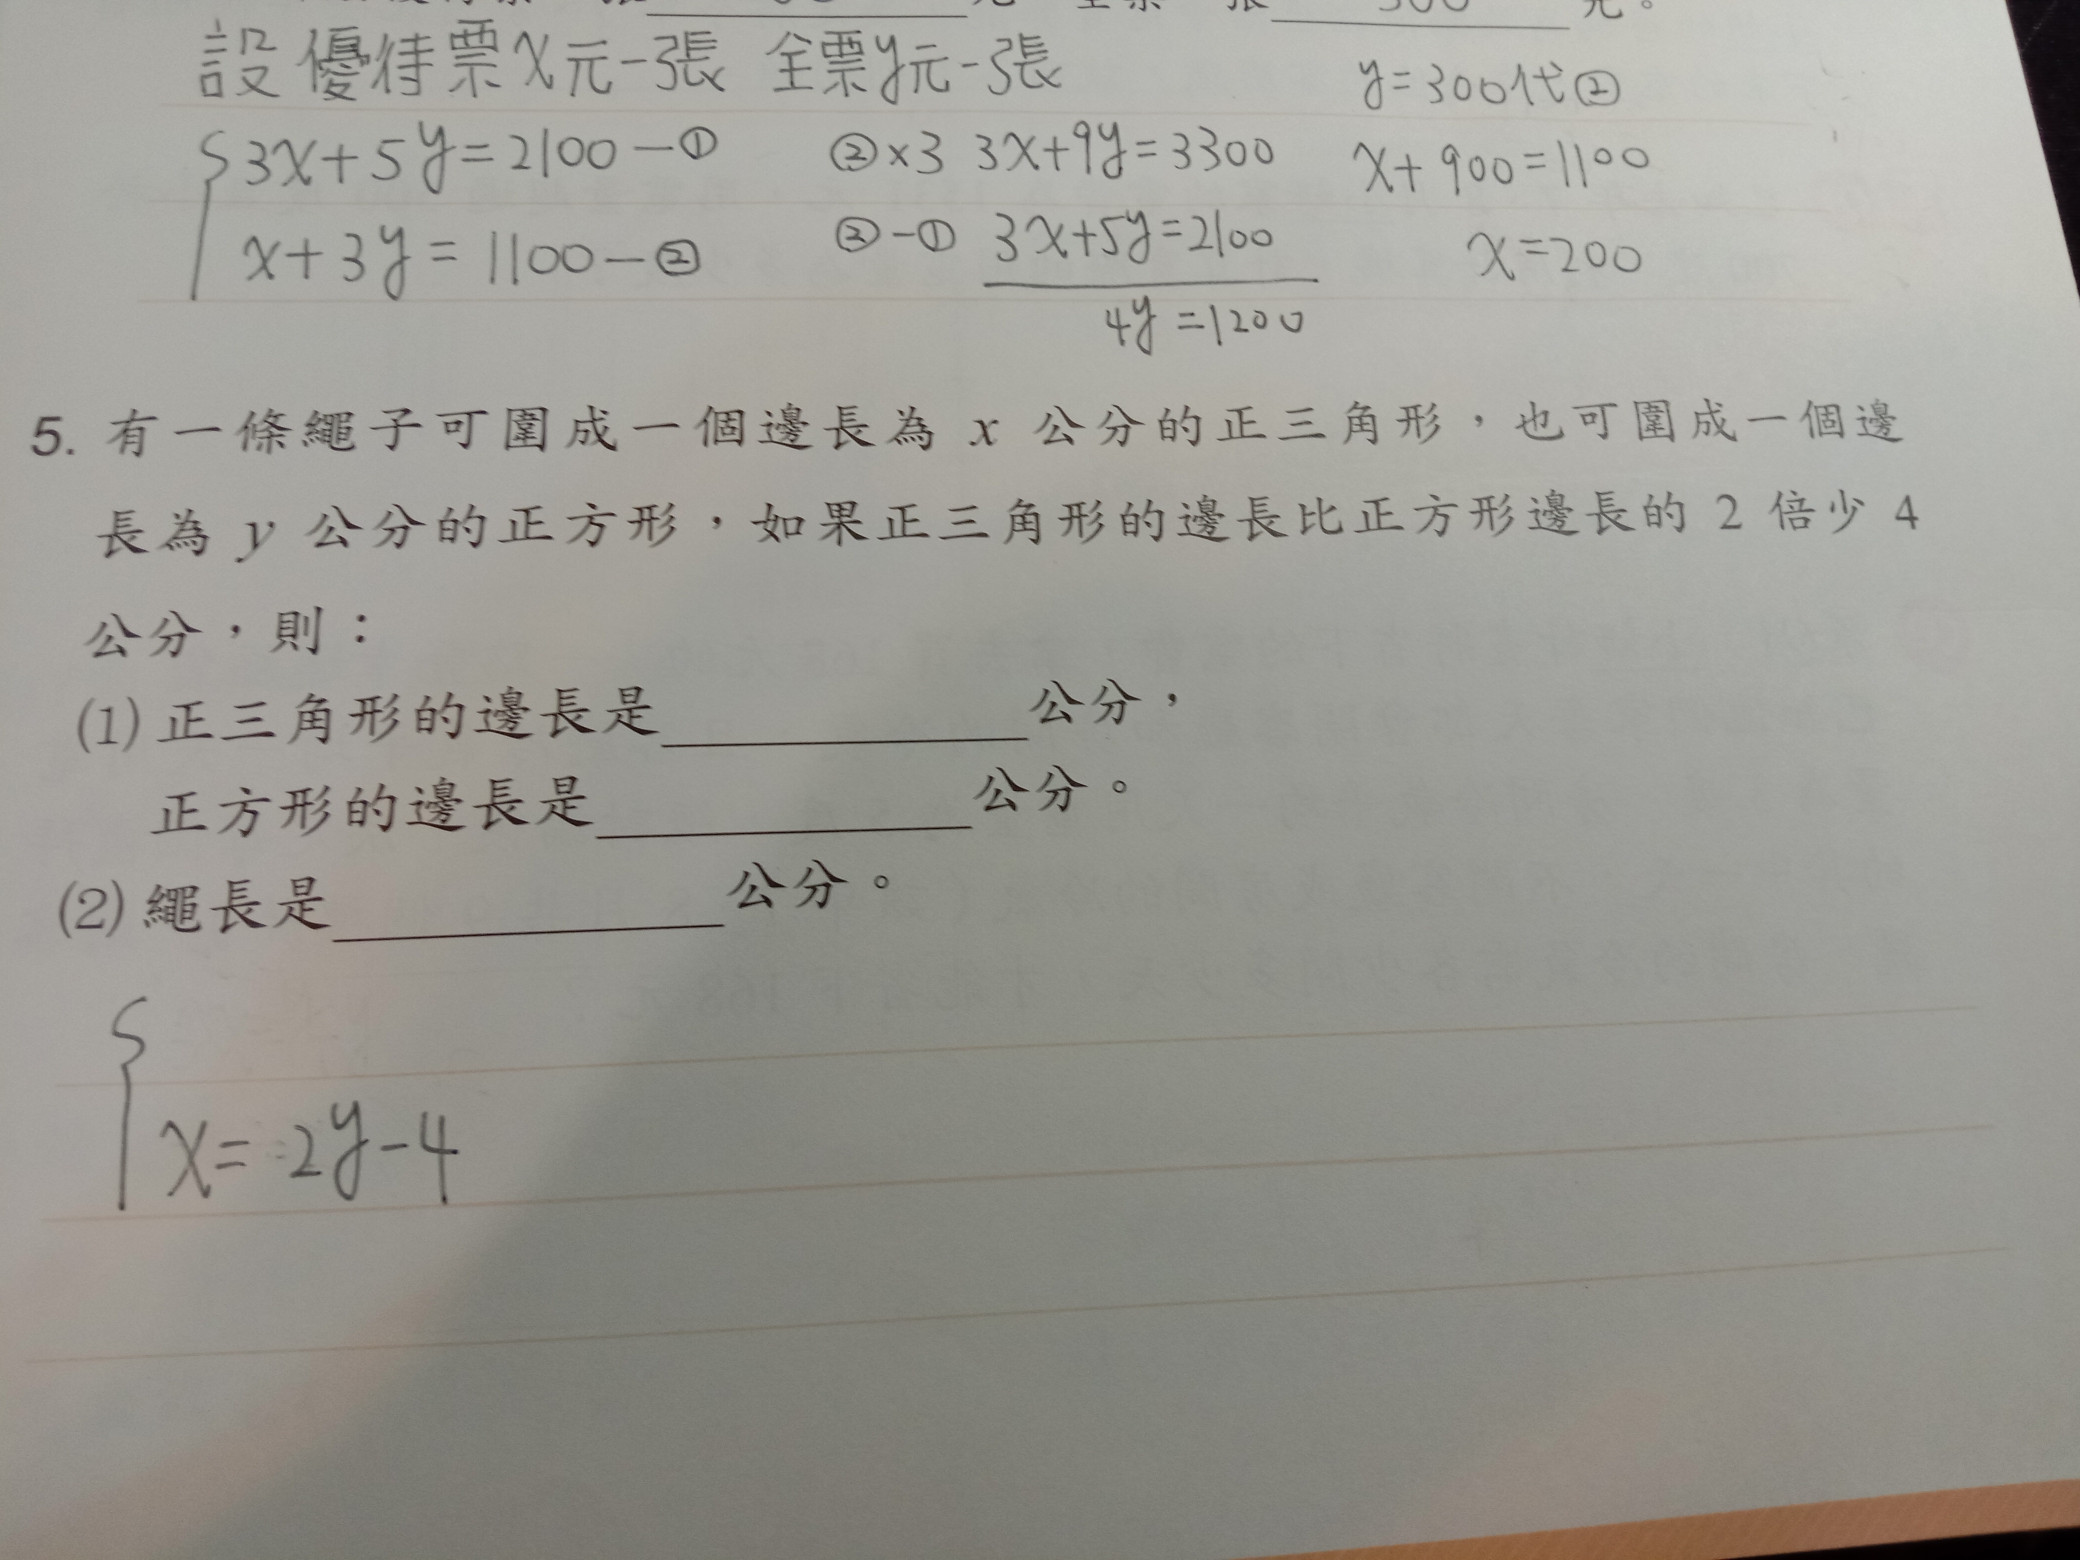 張 300 元。
設 優待票x元一張 全票y元一張
y=300代②
3x+5y=2100—① ②×3 3x+9y=3300 x+900=1100
x+3y=1100—② ②-① 3x+5y=2100 x=200
4y=1200
5. 有一條繩子可圍成一個邊長為 x 公分的正三角形，也可圍成一個邊
長為 y 公分的正方形，如果正三角形的邊長比正方形邊長的 2 倍少 4
公分，則：
(1) 正三角形的邊長是 公分，
正方形的邊長是 公分。
(2) 繩長是 公分。
x=2y-4